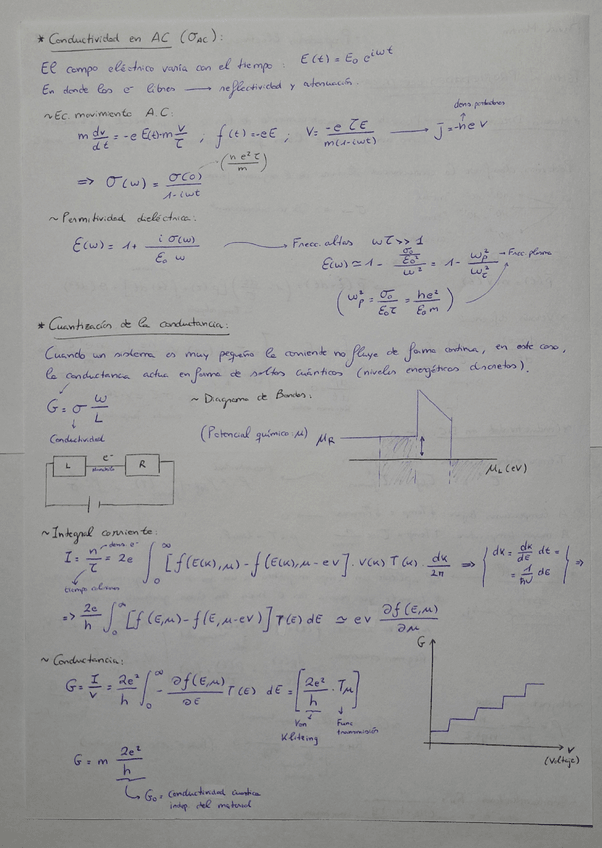 * Conductividad en AC (σAC):
El campo eléctrico varía con el tiempo: E(t) = E₀ e^{iωt}
En donde los e⁻ libres ⟶ reflectividad y atenuación.
~ Ec. movimiento A.C:
m dv/dt = -e E(t) - m v/τ ; f(t) = -eE ; V = -e τE / m(1-iωt) ⟶ j = -n e v
⇒ σ(ω) = σ(0) / 1-iωt (n e² τ / m)
~ Permitividad dieléctrica:
E(ω) = 1 + i σ(ω) / E₀ ω ⟶ Frecc. altas ωτ >> 1
E(ω) ≃ 1 - (σ₀/E₀τ) / ω² = 1 - ωp²/ωτ² → Frec. plasma
(ωp² = σ₀/E₀τ = ne²/E₀m)
* Cuantización de la conductancia:
Cuando un sistema es muy pequeño la corriente no fluye de forma continua, en este caso,
la conductancia actua en forma de saltos cuánticos (niveles energéticos discretos).
G = σ W/L
Conductividad
~ Diagrama de Bandas:
(Potencial químico: μ) μR
μL (eV)
L e⁻ R
~ Integral corriente:
I = n/τ = 2e ∫₀^∞ [f(E(k),μ) - f(E(k),μ-eV)] · V(k) T(k) · dk/2π ⇒ {dk = dk/dE dE = 1/ħV dE} ⇒
⇒ 2e/h ∫₀^∞ [f(E,μ) - f(E,μ-eV)] T(E) dE ≃ eV ∂f(E,μ)/∂μ
~ Conductancia:
G = I/V = 2e²/h ∫₀^∞ - ∂f(E,μ)/∂E T(E) dE = [2e²/h · Tμ]
Von Klitzing
Func transmisión
G
V (Voltaje)
G = m 2e²/h
G₀ = Conductividad cuantica
indep. del material